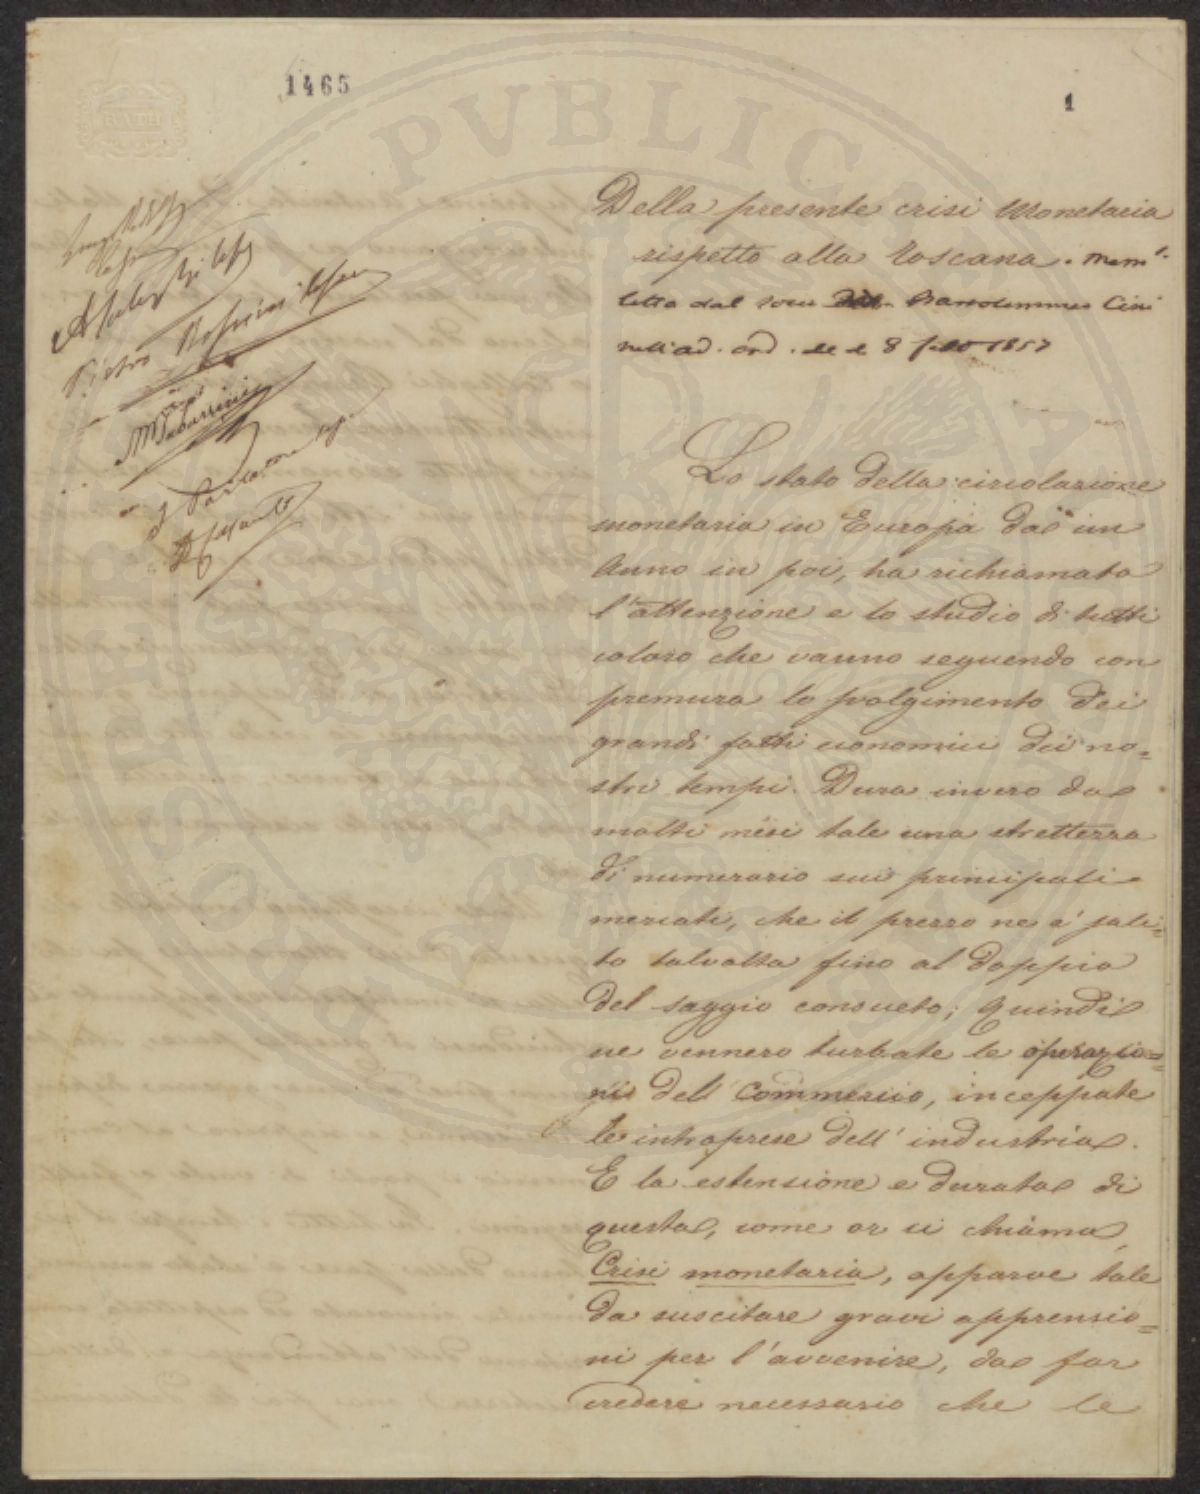 1465
1
BATH
PVBLICAE
Della presente crisi Monetaria
rispetto alla Toscana. Mem.ª
letta dal socio Bartolommeo Cini
nell'ad. ord. del 8 febb 1857
Pietro
Tabarrini
Lo stato della circolazione
monetaria in Europa da un
Anno in poi, ha richiamata
l'attenzione e lo studio di tutti
coloro che vanno seguendo con
premura lo svolgimento dei
grandi fatti economici dei no=
stri tempi. Dura invero da
molti mesi tale una strettezza
di numerario sui principali
mercati, che il prezzo ne è sali=
to talvolta fino al doppio
del saggio consueto; quindi
ne vennero turbate le operazio=
ni dell'Commercio, inceppate
le intraprese dell'industria.
E la estensione e durata di
questa, come or si chiama,
Crisi monetaria, apparve tale
da suscitare gravi apprensio=
ni per l'avvenire, da far
credere necessario che le